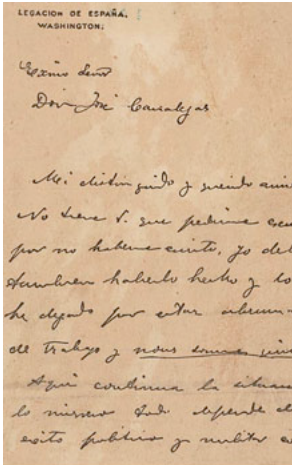 LEGACION DE ESPAÑA.
WASHINGTON.
Exmo Señor
Don José Canalejas
Mi distinguido y querido ami
No tiene V. que pedirme excu
por no haberme escrito, yo deb
tambien haberlo hecho y lo
he dejado por estar abrum
de trabajo y nous sommes
Aqui continua la situac
lo mismo todo depende de
exito politico y militar e